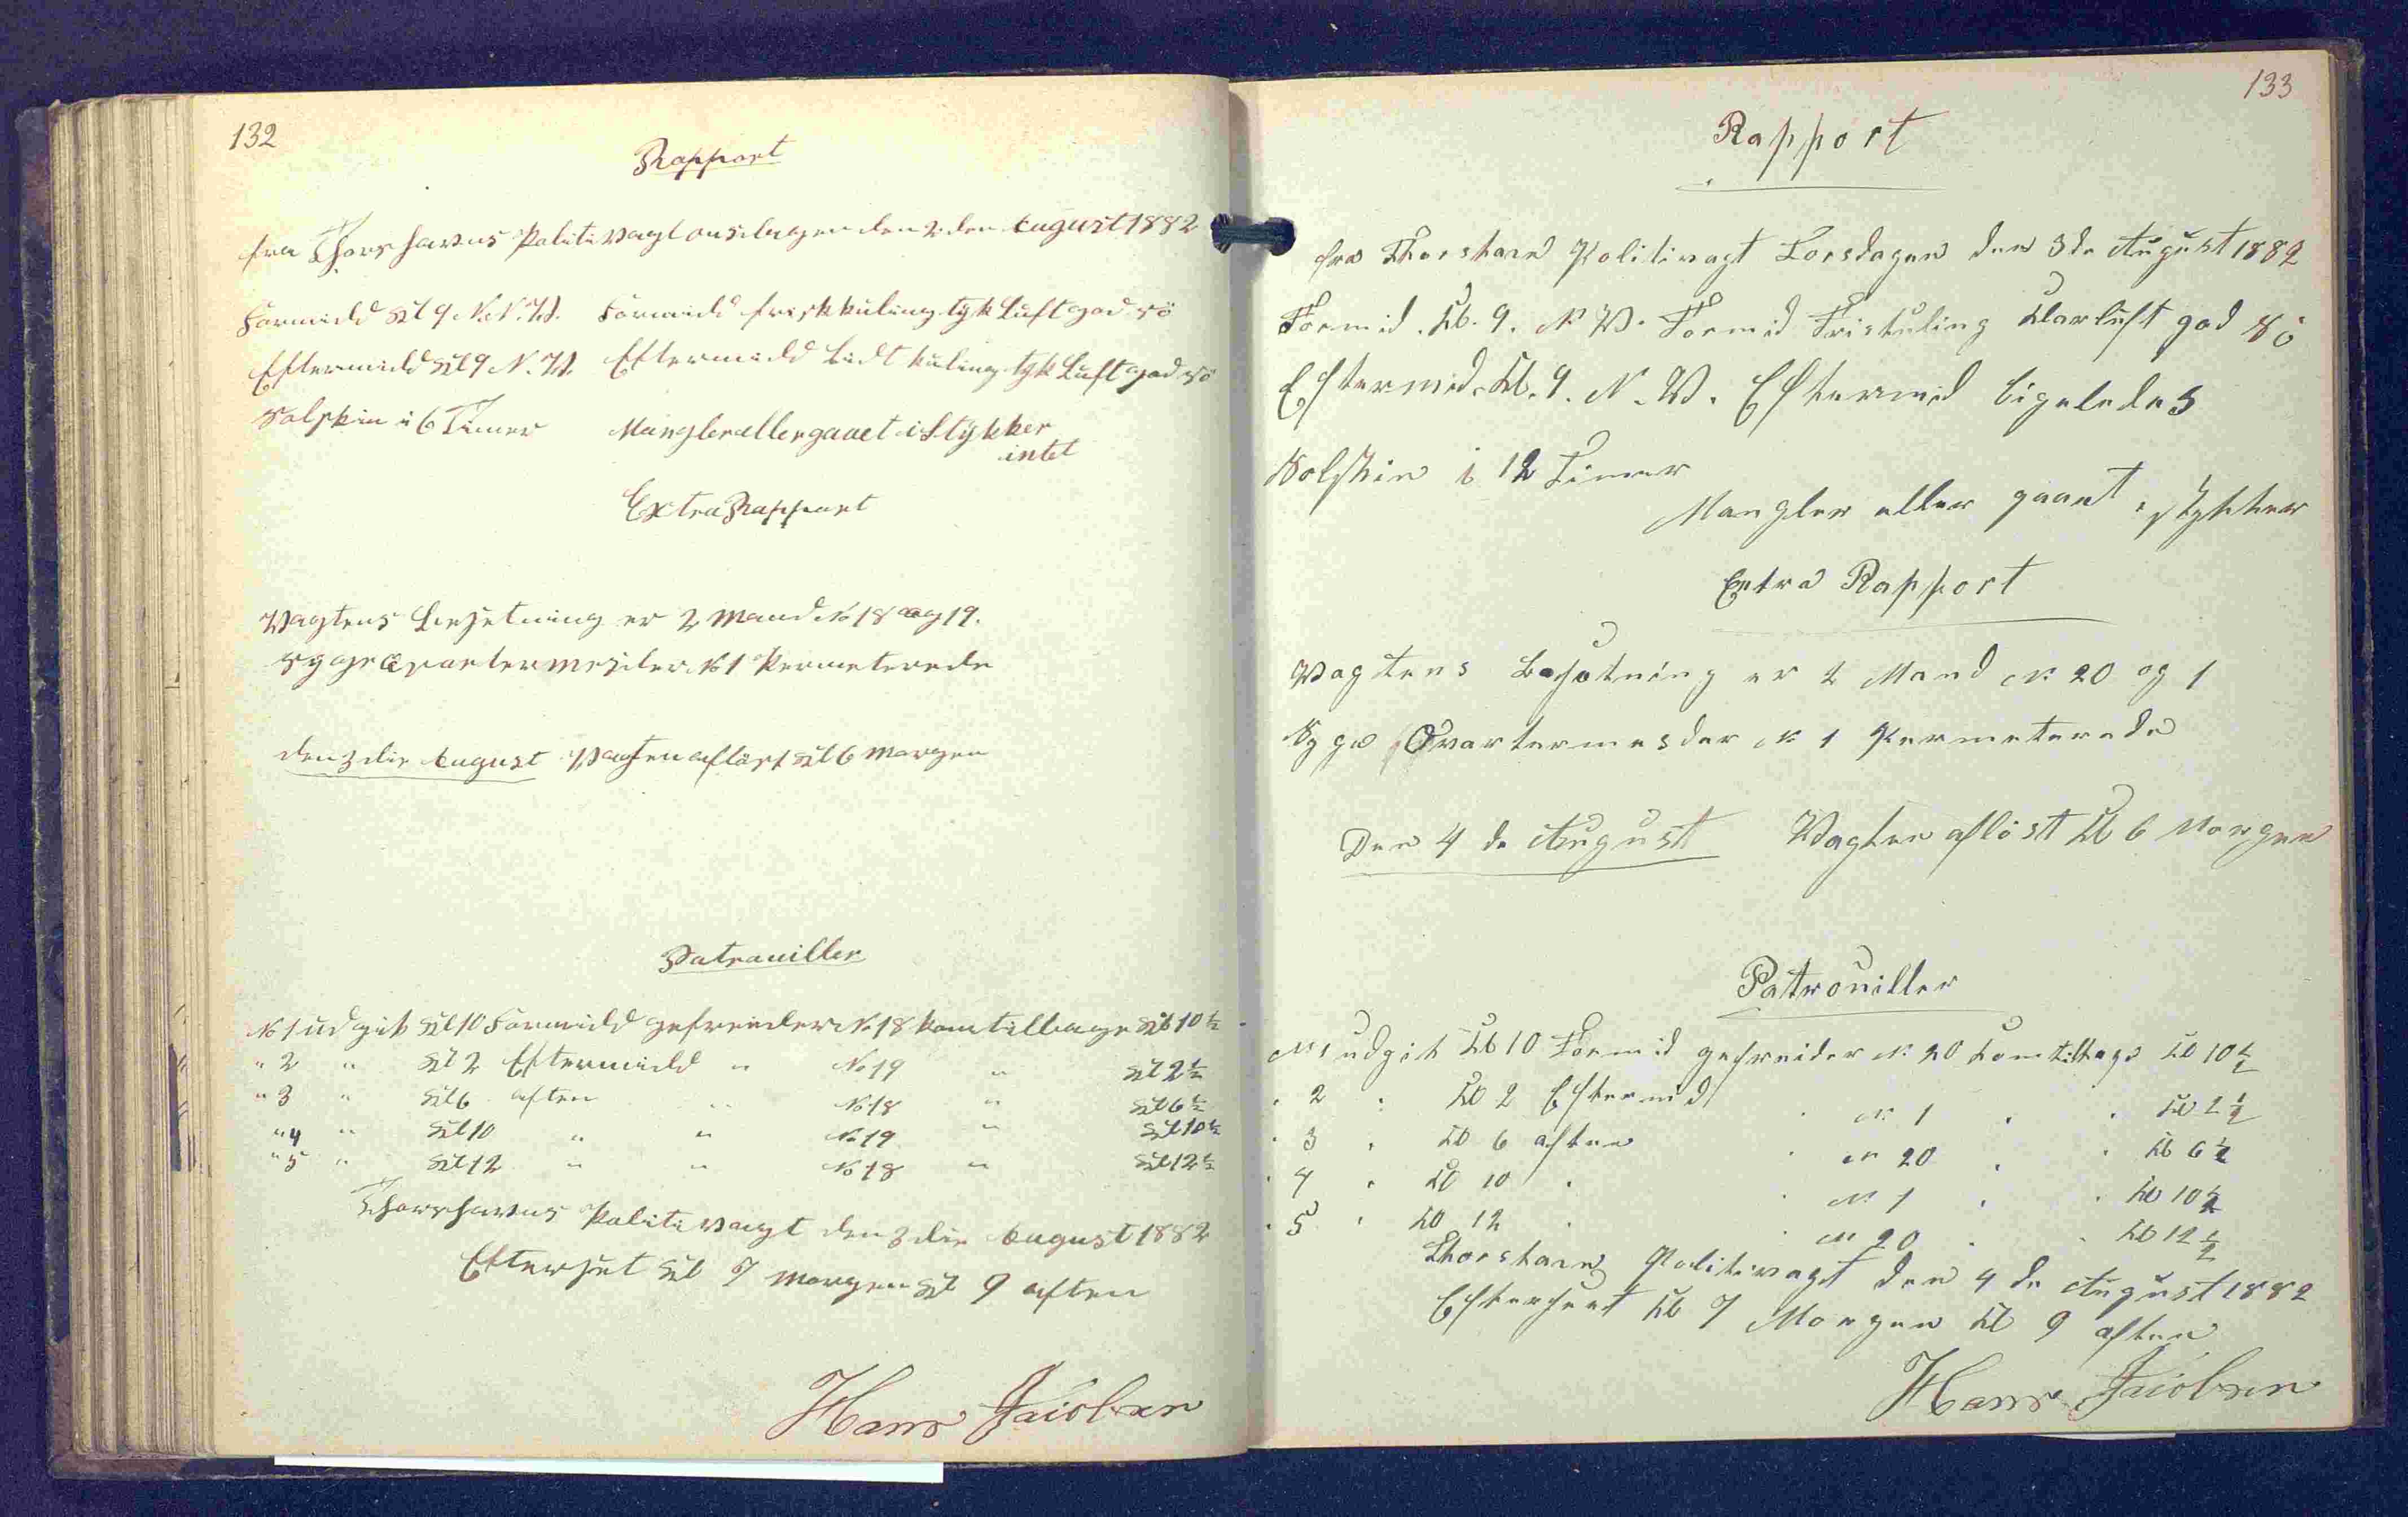 132
Rapport
fra Thorshavns Politivagt onsdagen den 2den August 1882
Formidd Kl 9 N.N.W. Formidd frisk kuling tyk Luft god sö
Eftermidd Kl 9 N.W. Eftermidd Lidt kuling tyk Luft god sö
Solskin i 6 Timer Mangler eller gaaet i Stykker
intet
Extra Rapport
Vagtens Besetning er 2 Mand No 18 og 19.
syge Qvartermester No 1 Permeterede
den 3die August Vagten aflöst Kl 6 Morgen
Patrouiller
No 1 udgik Kl 10 Formidd gefreider No 18 kom tilbage Kl 10 1/2
" 2 " Kl 2 Eftermidd " No 19 " Kl 2 1/2
" 3 " Kl 6 aften " No 18 " Kl 6 1/2
" 4 " Kl 10 " " No 19 " Kl 10 1/2
" 5 " Kl 12 " " No 18 " Kl 12 1/2
Thorshavns Politivagt den 3die August 1882
Efterset Kl 7 Morgen Kl 9 aften
Hans Jacobsen
133
Rapport
fra Thorshavn Politivagt Torsdagen den 3de August 1882
Formid. Kl. 9. N.W. Formid Friskuling Klarluft god Sö
Eftermid. Kl. 9. N.W. Eftermid ligeledes
Solskin i 12 Timer
Mangler eller gaaet i stykker
Extra Rapport
Vagtens Besetning er 2 Mand No 20 og 1
Syge Qvartermester No 1 Permeterede
Den 4de August Vagten aflöst Kl 6 Morgen
Patrouiller
No 1 udgik Kl 10 Formid gefreider No 20 kom tilbage Kl 10 1/2
" 2 " Kl 2 Eftermid " No 1 " " Kl 2 1/2
" 3 " Kl 6 aften " No 20 " " Kl 6 1/2
" 4 " Kl 10 " " No 1 " " Kl 10 1/2
" 5 " Kl 12 " " No 20 " " Kl 12 1/2
Thorshavn Politivagt den 4de August 1882
Efterseet Kl 7 Morgen Kl 9 aften
Hans Jacobsen